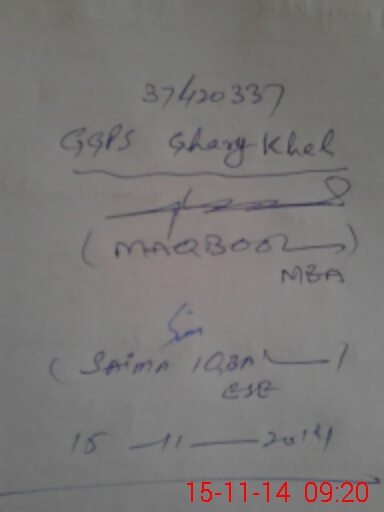 37420337
GGPS Gharg Khel
(MAQBOOL)
MEA
(SAIMA IQBAL)
ESE
15-11-2014
15-11-14 09:20